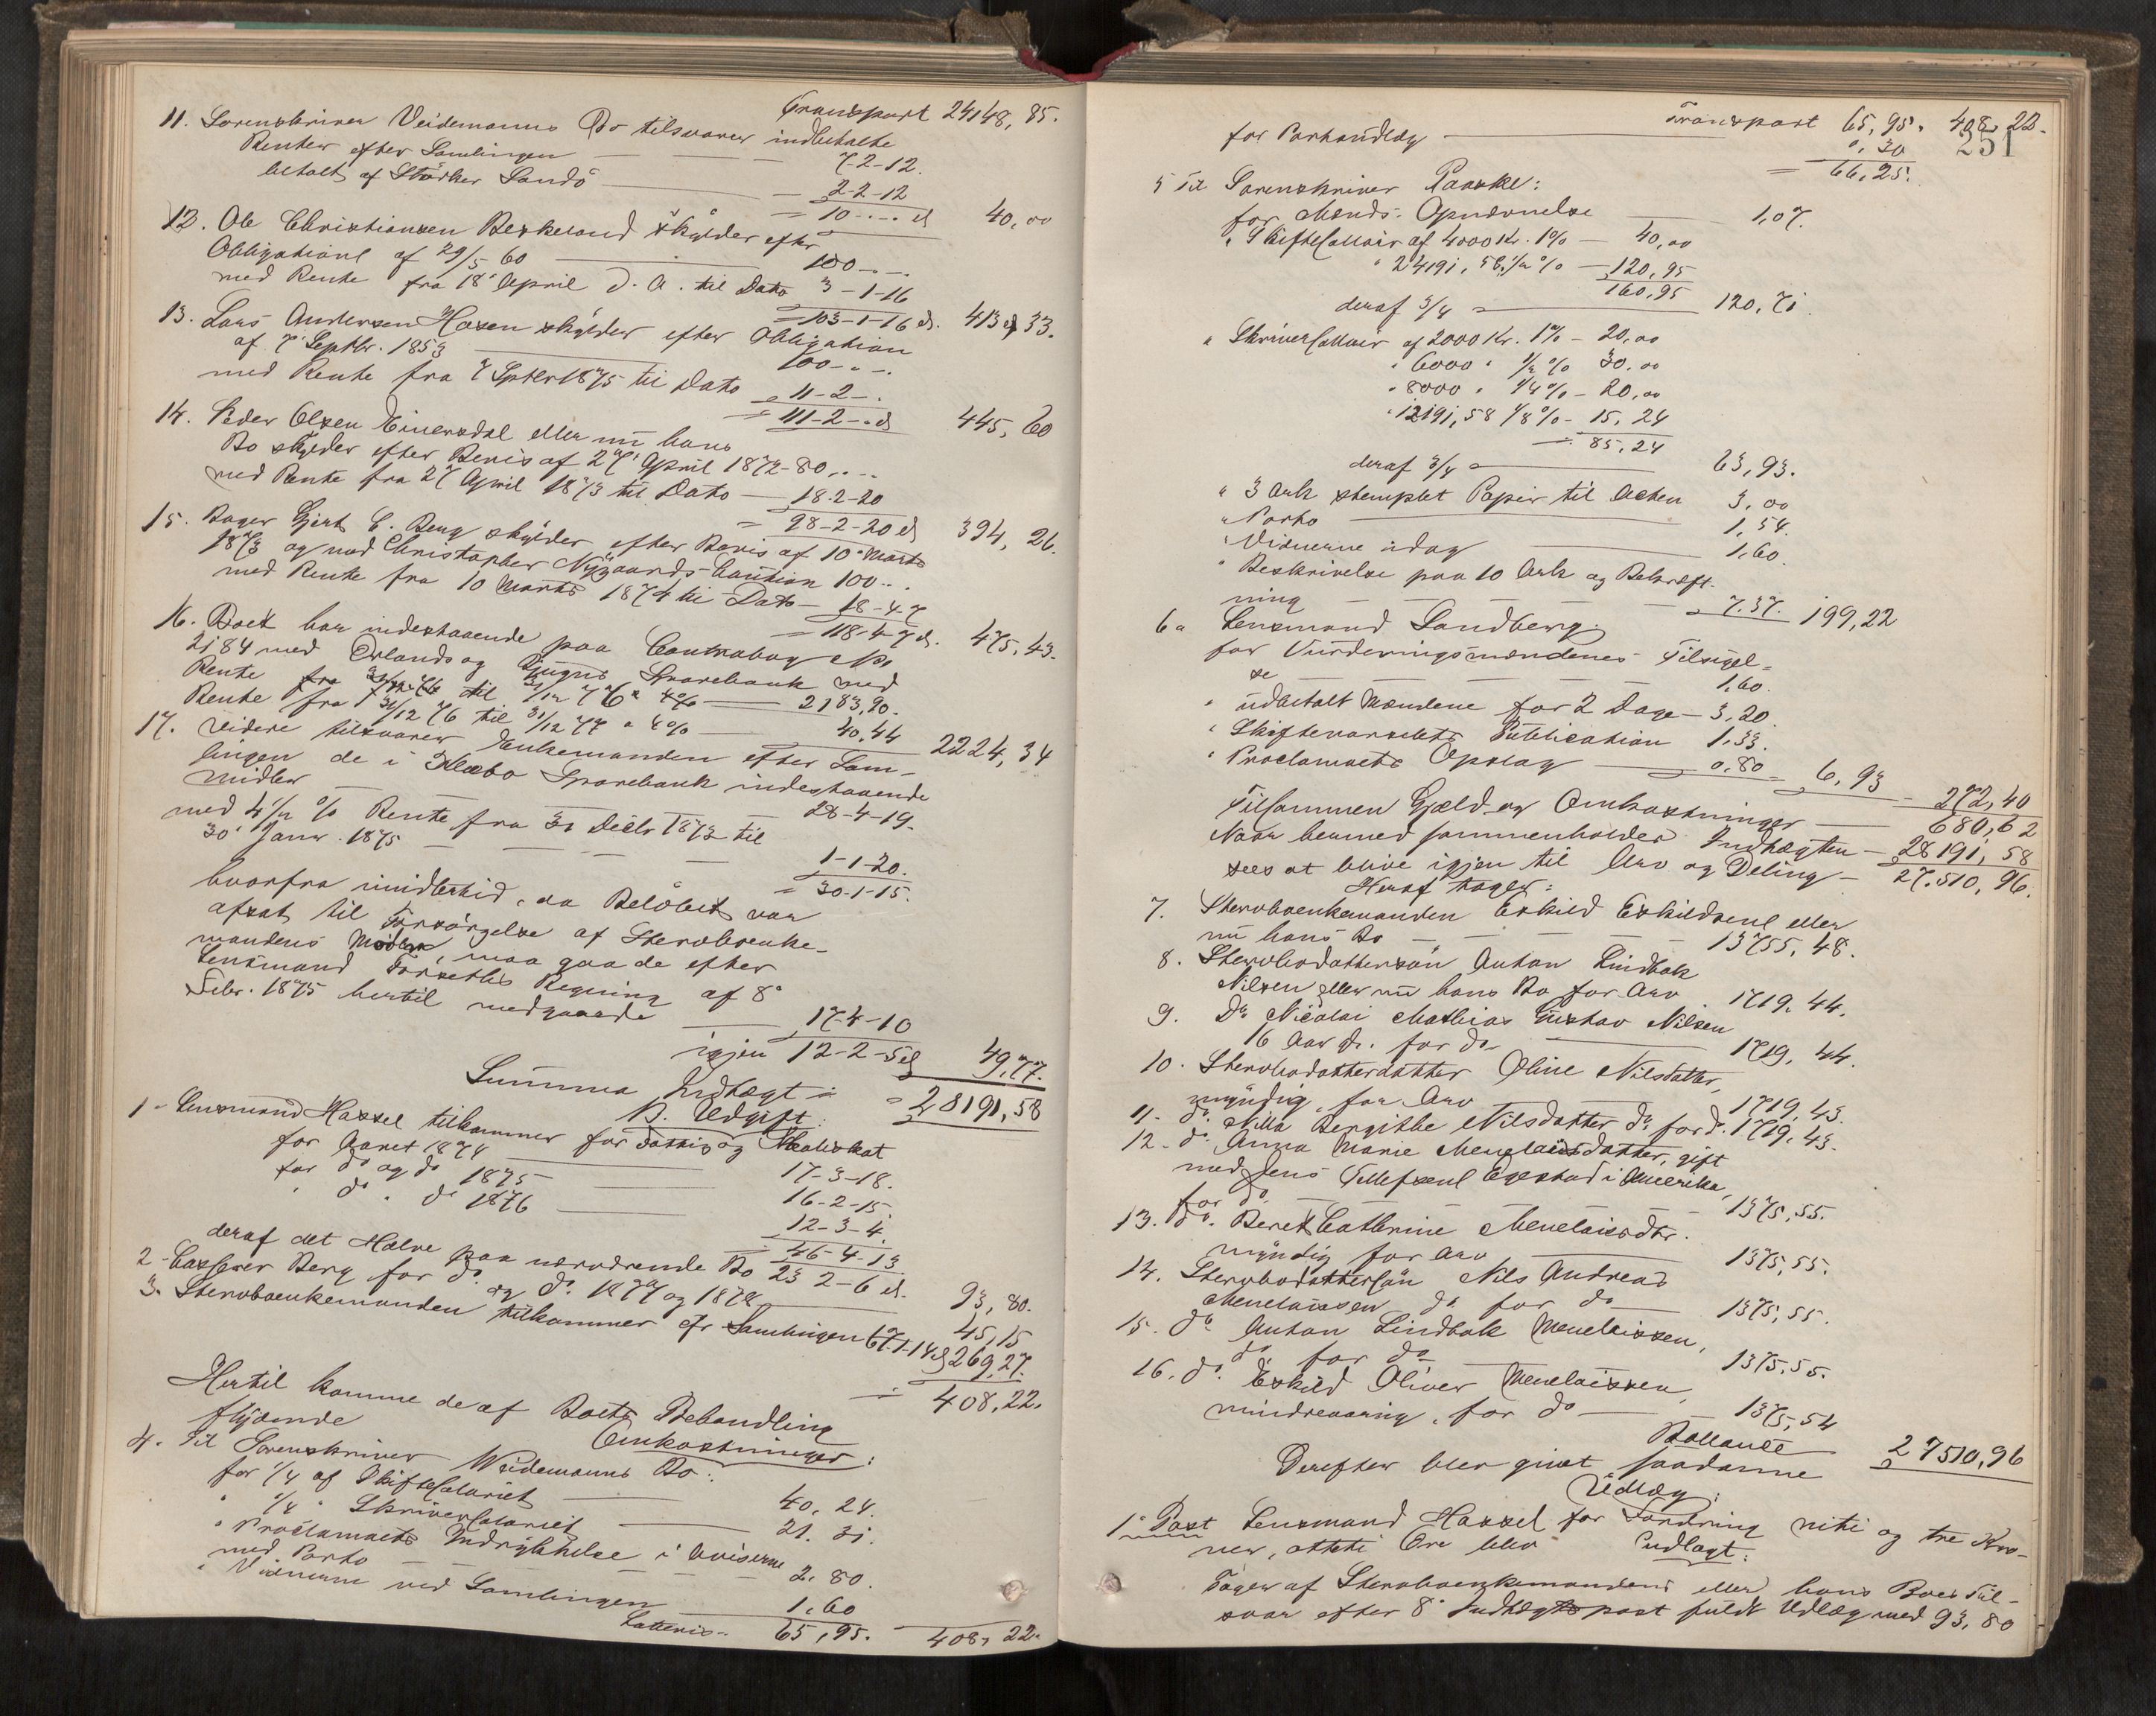 Transport 24148, 85.
11. Sorenskriver Weidemanns Bo tilsvarer indbetalte
Renter efter Samlingen 7-2-12.
betalt af Stärker Sandö 2-2-12
= 10 - - d 40,00
12. Ole Christiansen Beskeland skylder efter
Obligationl af 29/5 60 100 - - .
med Rente fra 18 April d. A. til Dato 3-1-16
= 103-1-16 d. 413 33.
13. Lars Andersen Hasen skylder efter Obligation
af 7 Septbr. 1853 100 - - .
med Rente fra 7 Septbr 1875 til Dato 11-2-.
= 111-2-. d 445, 60
14. Peder Olsen Einersdal eller nu hans
Bo skylder efter Bevis af 27 April 1872 - 80 . . -
med Rente fra 27 April 1873 til Dato - 18-2-20
= 98-2-20 d 394, 26.
15. Bager Gjert C. Berg skylder efter Bevis af 10 Marts
1873 og med Christopher Nygaards Caution 100 - .
med Rente fra 10 Marts 1874 til Dato - 18-4-7
= 118-4-7 d. 475, 43.
16. Boet har indestaaende paa Contrabog No
2184 med Ørlands og Bjugns Sparebank med
Rente fra til 31/12 76 4% 2183,90.
Rente fra 31/12 76 til 31/12 77 4% 40,44 2224, 34
17. videre tilsvarer Enkemanden efter Sam-
lingen de i Klæbo Sparebank indestaaende
Midler 28-4-19.
med 4 1/2 % Rente fra 31 Decbr 1873 til
30 Janr. 1875 1-1-20.
= 30-1-15.
hvorfra imidlertid, da Beløbet var
afsat til Forsørgelse af Stervboenke-
mandens Moder, maa gaa de efter
Lensmand Forseths Regning af 8
Febr. 1875 hertil medgaaede 17-4-10
igjen 12-2-5 d 49,77.
Summa Indtægt = 28191,58
B. Udgift:
1. Lensmand Hassel tilkommer for Fattig og Skoleskat
for Aaret 1874 17-3-18.
for do og do 1875 16-2-15.
" do " do 1876 12-3-4.
46-4-13
deraf det Halve paa nærværende Bo 23 2-6 d. 93, 80.
2. Casserer Berg for do og do 1877 og 1878 45,15
3. Stervboenkemanden tilkommer efr Samlingen 67-1-14 269,27.
= 408,22.
Hertil komme de af Boets Behandling
flydende Omkostninger:
4. Til Sorenskriver Weidemanns Bo:
for 1/4 af Skiftesalariet 40, 24.
" 1/4 " Skriversalariet 21. 31.
" Proclamaets Indrykkelse i Aviserne
med Porto 2. 80.
" Vidnerne ved Samlingen 1,60
Lateris 65,95. 408, 22.
Transport 65,95. 408,22.
251
for Forhandling 0. 30
= 66,25.
5 Til Sorenskriver Paaske:
for Mænds Opnævnelse 1,07.
" Skiftesallair af 4000 Kr. 1% - 40,00
" 24191, 58 1/2 % - 120,95
160,95
deraf 3/4 = 120,71.
" Skriversallair af 2000 Kr. 1% - 20,00
" 6000 " 1/2 % 30,00
" 8000 " 1/4 % - 20,00
" 12191,58 1/8 % - 15,24
= 85,24
deraf 3/4 = 63,93.
" 3 Ark stemplet Papir til Acten 3,00
" Porto 1,54.
" Vidnerne idag 1,60.
" Beskrivelse paa 10 Ark og Bekræft-
ning 7.37. 199,22
6. Lensmand Sandberg.
for Vurderingsmændenes Tilsigel-
se 1,60.
" udbetalt Mændene for 2 Dage - 3,20.
" Skiftevarselets Publication 1,33.
" Proclamaets Opslag 0,80 = 6,93 - 272,40
Tilsammen Gjæld og Omkostninger 680,62
Naar hermed sammenholdes Indtægten - 28191,58
sees at blive igjen til Arv og Deling - 27.510,96.
Heraf tager:
7. Stervboenkemanden Eskild Eskildsenl eller
nu hans Bo 13755,48.
8. Stervbodattersøn Anton Lindbak
Nilsen eller nu hans Bo for Arv 1719,44.
9. Do Nicolai Mathias Gustav Nilsen
16 Aar gl. for do 1719, 44.
10. Stervbodatterdatter Oline Nilsdatter,
myndig, for Arv 1719,43.
11. do Nilla Bergitte Nilsdatter do for do 1719,43.
12. do Anna Marie Menelausdatter, gift
med Jens Tellefsenl Egestad i Amerika,
for do 1375,55.
13. do. Beret Cathrine Menelausdtr.
myndig for Arv 1375,55.
14. Stervbodattersøn Nils Andreas
Menelaussen do for do 1375,55.
15. do Anton Lindbak Menelaussen,
do for do 1375,55.
16. do. Eskild Oliver Menelaussen,
mindreaarig, for do 1375,54
Ballance 27510,96
Derefter blev gjort saadanne
Udlæg:
1. Post Lensmand Hassel for Fordring niti og tre Kro-
ner, otteti Øre blev Udlagt:
Tager af Stervboenkemandens eller hans Boes Til-
svar efter 8 Indtægtspost fuldt Udlæg med 93,80